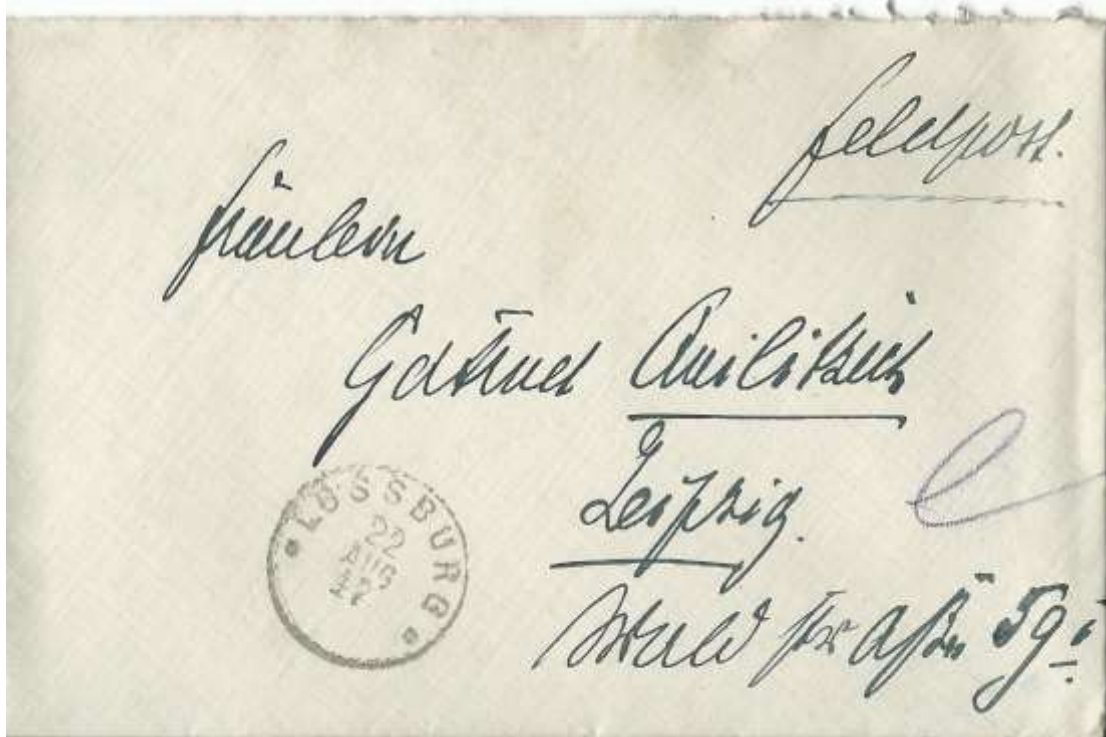 Feldpost.
Fräulein
Gertrud Quilitzsch
Leipzig.
Waldstraße 59
LOSSBURG
22
AUG